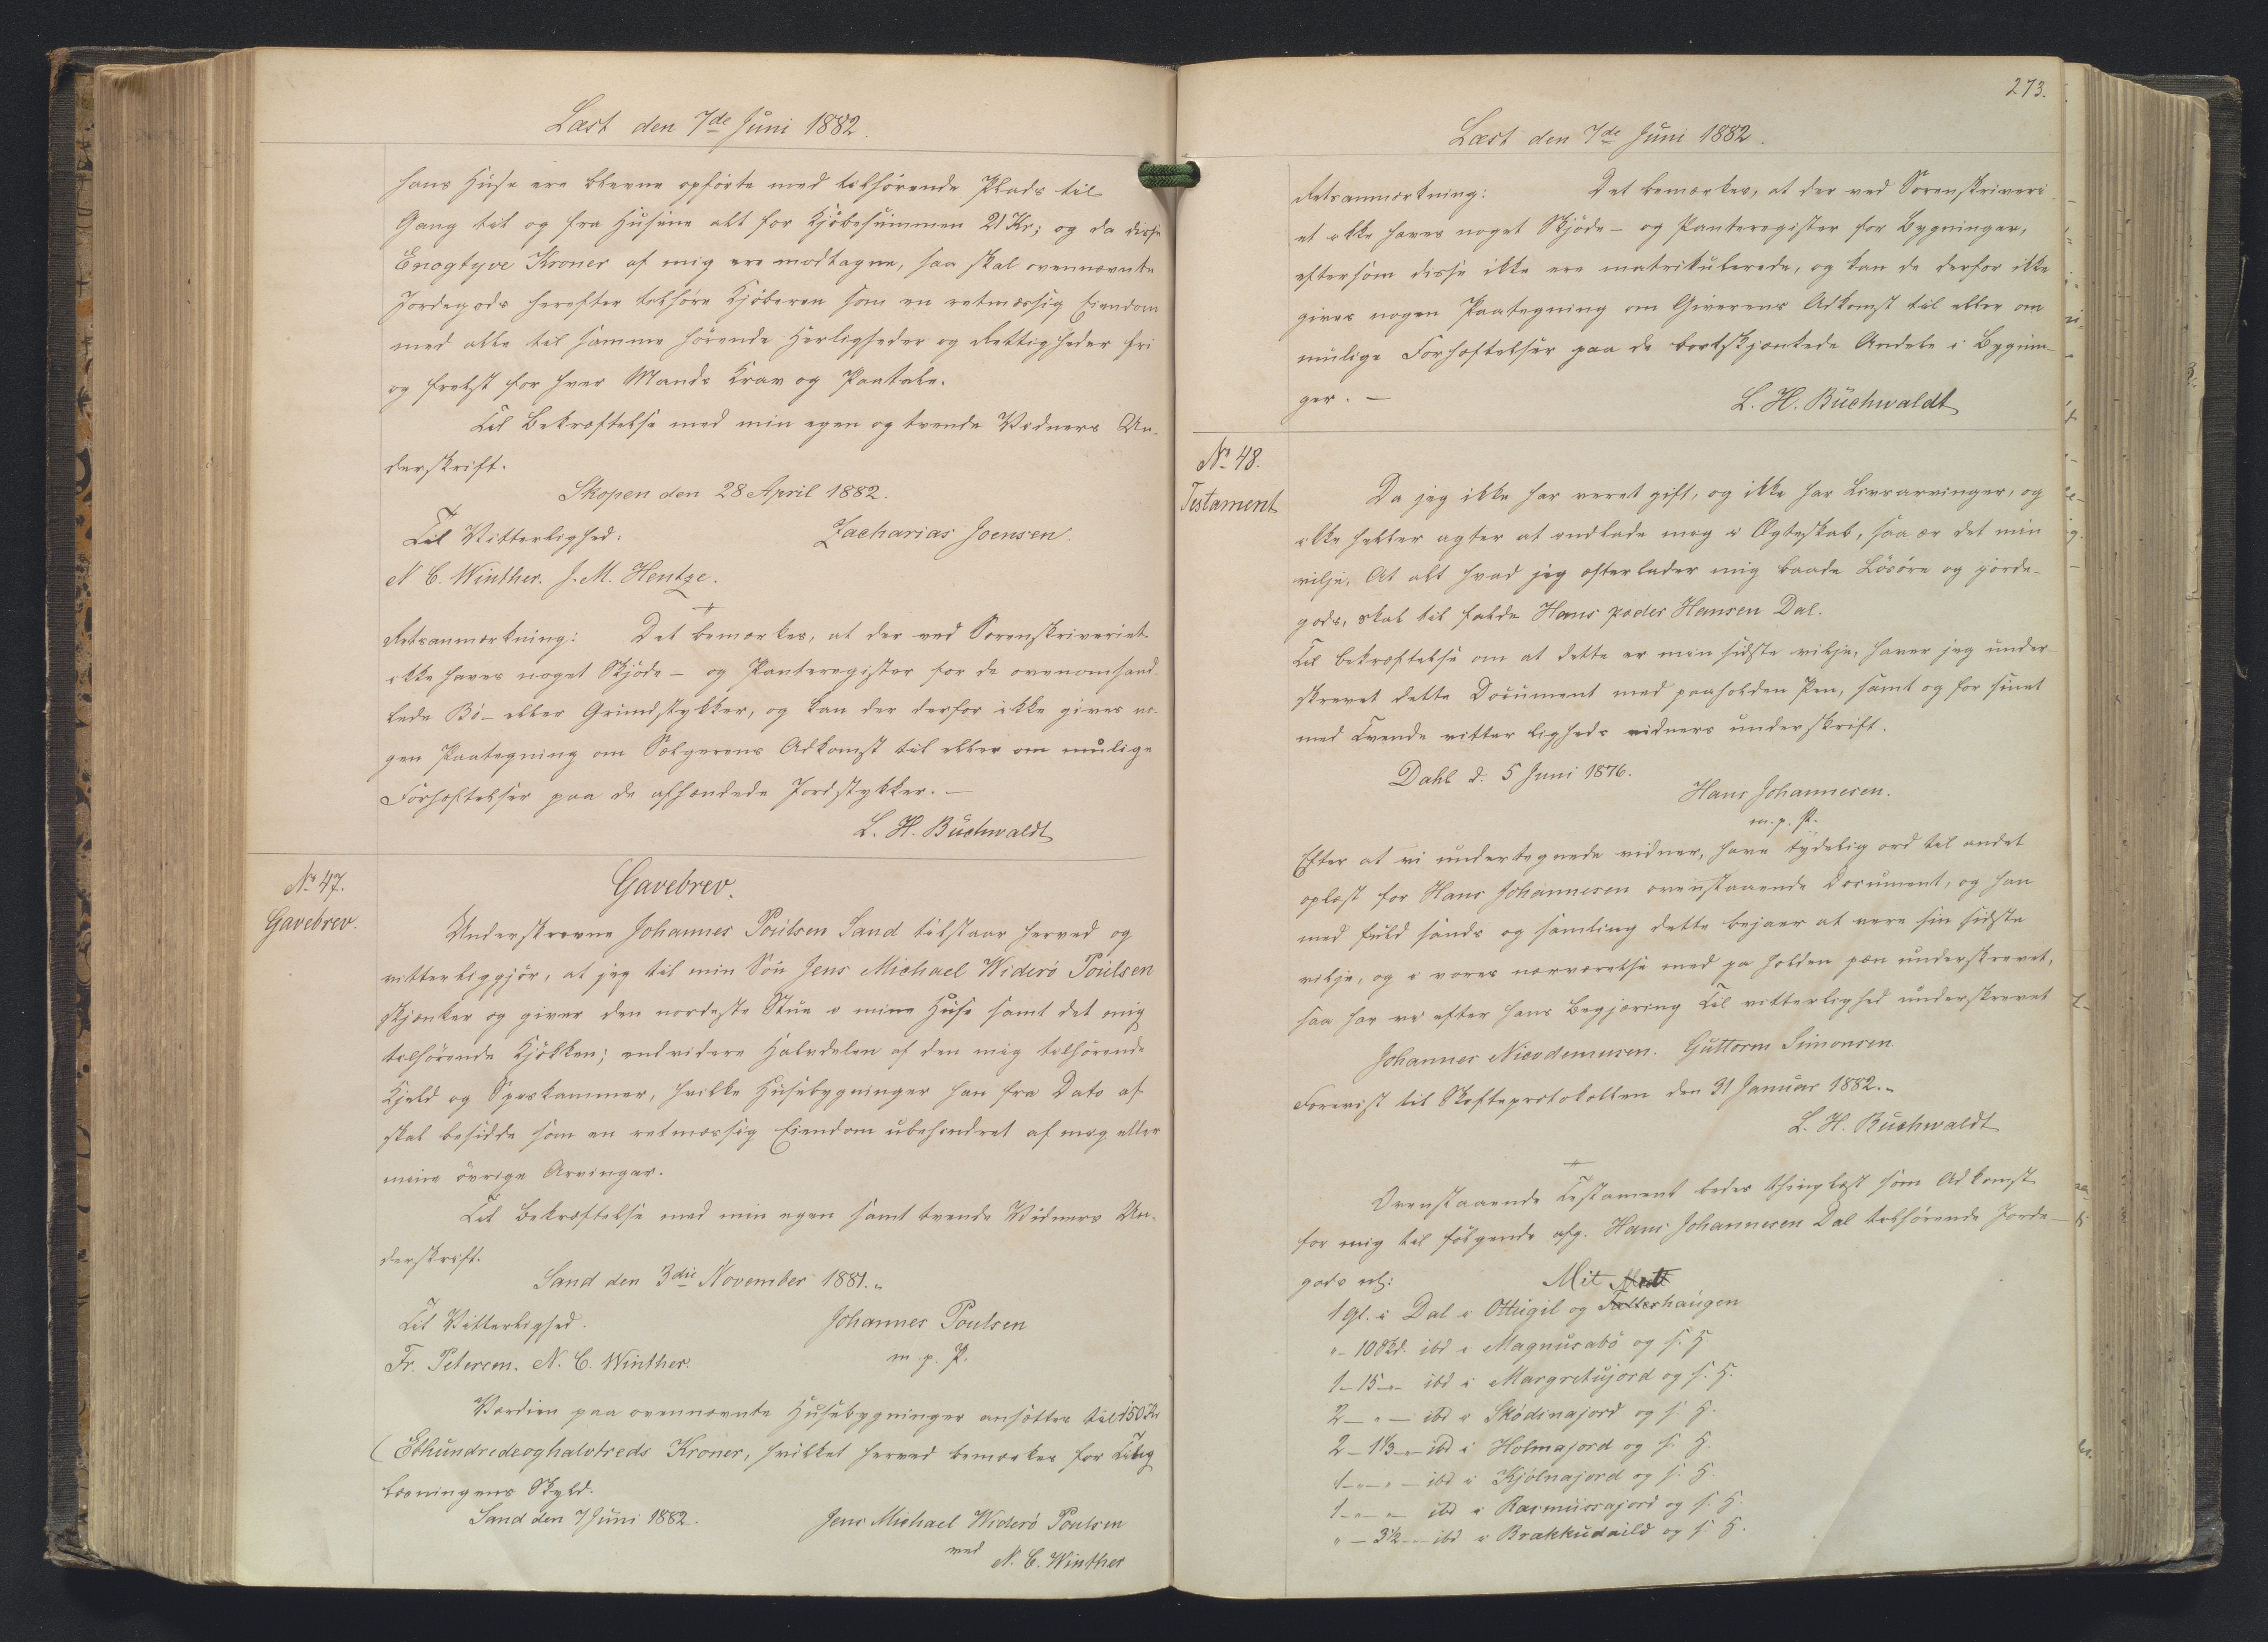 Læst den 7de Juni 1882.
hans Huse ere blevne opførte med tilhørende Plads til
Gang til og fra Husene alt for Kjøbesummen 21 Kr; og da disse
Enogtyve Kroner af mig ere modtagne, saa skal ovennævnte
Jordegods herefter tilhøre Kjøberen som en retmæssig Eiendom
med alle til samme hørende Herligheder og Rettigheder fri
og frelst for hver Mands Krav og Paatale.
Til Bekræftelse med min egen og tvende Vidners Un-
derskrift.
Skopen den 28 April 1882.
Til Vitterlighed:
Zacharias Joensen.
N C. Winther. J. M. Hentze.
Retsanmærkning: Det bemærkes, at der ved Sorenskriveriet
ikke haves noget Skjøde- og Panteregister for de ovenomhand-
lede Bø- eller Grundstykker, og kan der derfor ikke gives no-
gen Paategning om Sælgerens Adkomst til eller om mulige
Forhæftelser paa de afhændede Jordstykker. —
L. H. Buchwaldt
No 47.
Gavebrev.
Gavebrev.
Underskrevne Johannes Poulsen Sand tilstaar herved og
vitterliggjør, at jeg til min Søn Jens Michael Niclas Widerø Poulsen
skjænker og giver den nordeste Stue i mine Huse samt det mig
tilhørende Kjøkken; endvidere Halvdelen af den mig tilhørende
Kjeld og Speskammer, hvilke Husebygninger han fra Dato af
skal besidde som en retmæssig Eiendom ubehindret af mig eller
mine øvrige Arvinger.
Til Bekræftelse med min egen samt tvende Vidners Un-
derskrift.
Sand den 3die November 1881.
Til Vitterlighed.
Johannes Poulsen
m. p. P.
Fr. Petersen. N. C. Winther.
Værdien paa ovennævnte Husebygninger ansættes til 150 Kr
(Ethundredeoghalvtreds Kroner, hvilket herved bemærkes for Ting
læsningens Skyld.
Sand den 7 Juni 1882.
Jens Michael Widerø Poulsen
ved
N. C. Winther
273.
Læst den 7de Juni 1882.
Retsanmærkning: Det bemærkes, at der ved Sorenskriveri
et ikke haves noget Skjøde- og Panteregister for Bygninger,
eftersom disse ikke ere matrikulerede, og kan de derfor ikke
gives nogen Paategning om Giverens Adkomst til eller om
mulige Forhæftelser paa de bortskjænkede Andele i Bygnin-
ger. —
L. H. Buchwaldt
No 48.
Testament
Da jeg ikke har veret gift, og ikke har Livsarvinger, og
ikke heller agter at indlade mig i Ægteskab, saa er det min
vilje, At alt hvad jeg efterlader mig baade Løsøre og jorde-
gods, skal til falde Hans peder Hansen Dal.
Til bekræftelse om at dette er min sidste vilje, haver jeg under-
skrevet dette Document med paaholden Pen, samt og for sinet
med Tvende vitter ligheds vidners underskrift.
Dahl d. 5 Juni 1876.
Hans Johannesen.
m. p. P.
Efter at vi undertegnede vidner, have tydelig ord til andet
oplæst for Hans Johannesen ovenstaaende Document, og han
med fuld sands og samling dette bejaer at vere sin sidste
vilje, og i vores nærværelse med pa holden pen underskrevet,
saa har vi efter hans Begjæring Til vitterlighed underskrevet
Johannes Nicodemusen. Guttorm Simonsen.
Forevist til Skifteprotokollen den 31 Januar 1882.
L. H. Buchwaldt
Ovenstaaende Testament bedes thinglæst som Adkomst
for mig til følgende afg. Hans Johannesen Dal tilhørende Jorde-
gods nl:
1 Gl. i Dal i Ottugil og haugen
" - 10 Skd. ibd i Magnusabø og s. H.
1 - 15 - " - ibd i Margretujord og s. H.
2 - " - ibd i Skødinajord og s. H.
2 - 1 1/3 - " - ibd i Holmajord og s. H.
1 - " - " - ibd i Kjølnajord og s. H.
1 - " - " - ibd i Rasmussajord og s. H.
" - 3 1/2 - " - ibd i Brakkudaild og s. H.